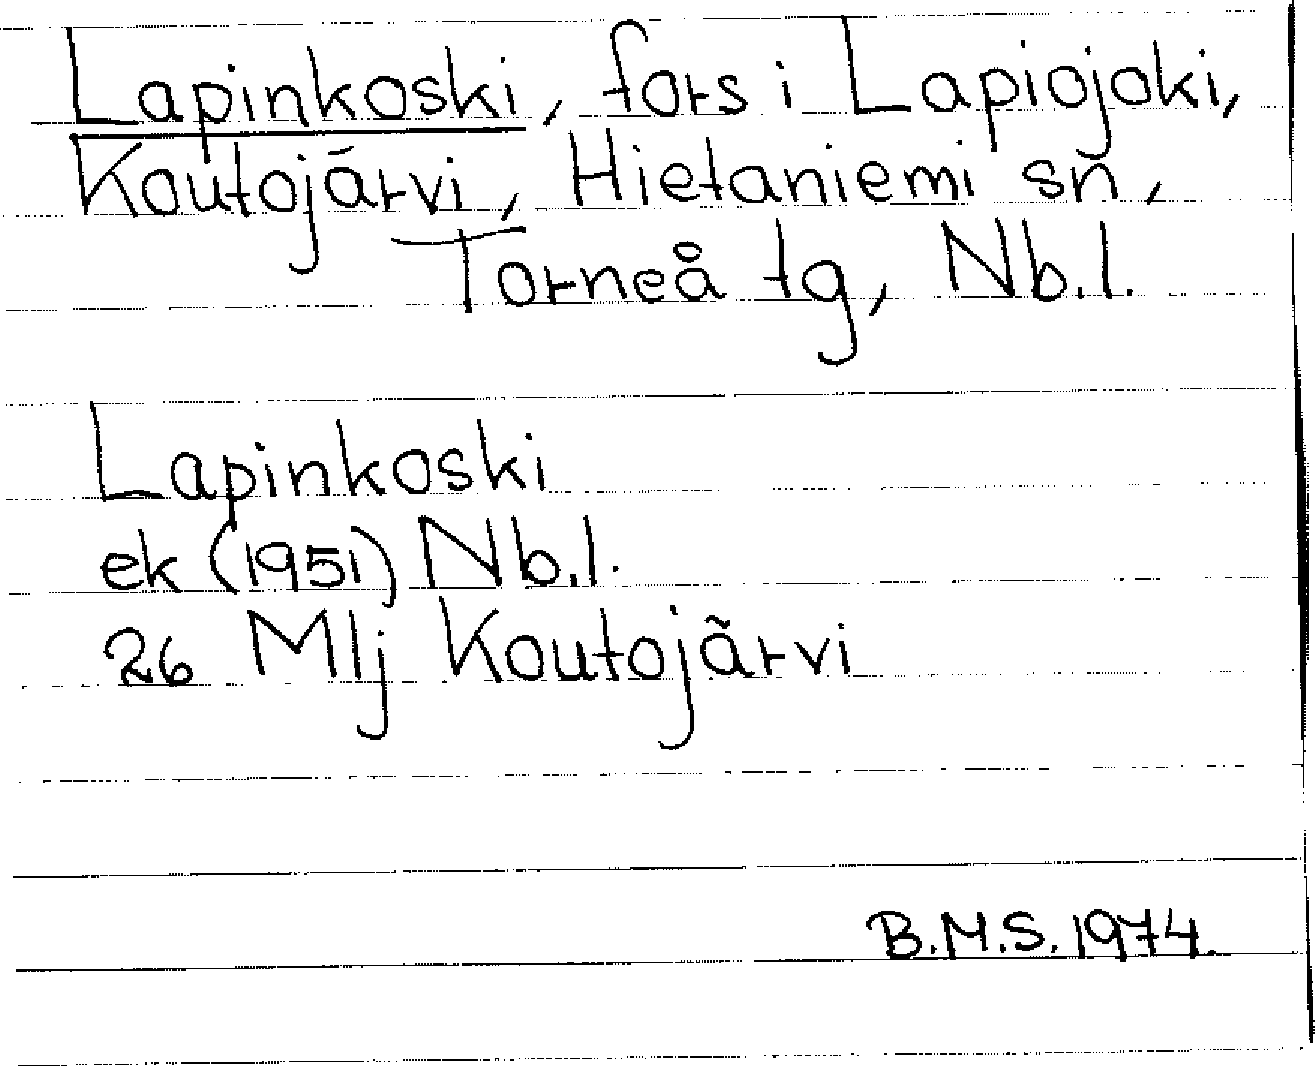 Lapinkoski, fors i Lapiojoki,
Koutojärvi, Hietaniemi sn,
Torneå tg, Nb.l.
Lapinkoski
ek (1951) Nb.l.
26 Mlj Koutojärvi
B.M.S. 1974.